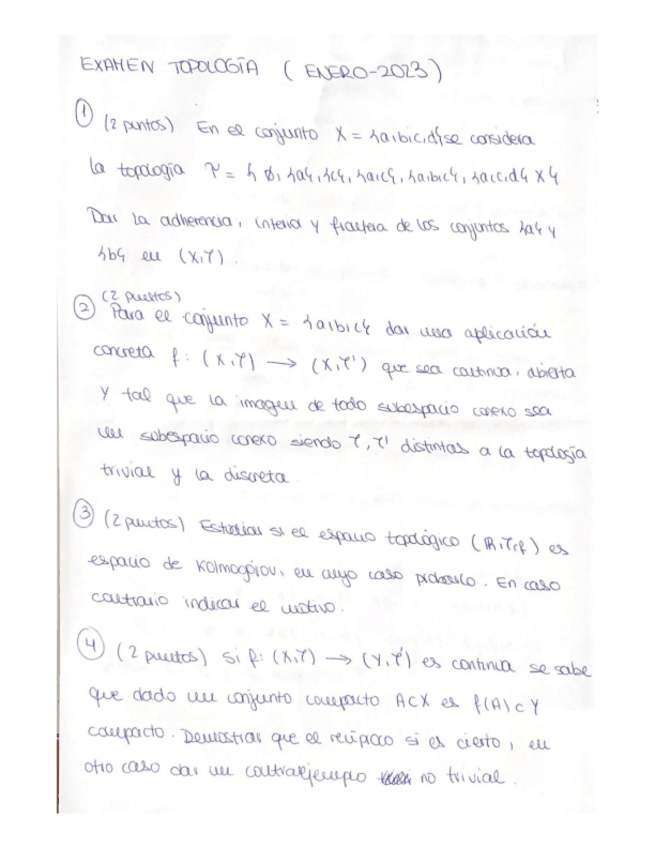 EXAMEN TOPOLOGÍA ( ENERO-2023)
① (2 puntos) En el conjunto X = {a,b,c,d} se considera
la topología τ = { ∅, {a}, {c}, {a,c}, {a,b,c}, {a,c,d} X }
Dar la adherencia, interior y frontera de los conjuntos {a} y
{b} en (X,τ).
(2 puntos)
② Para el conjunto X = {a,b,c} dar una aplicación
concreta f: (X,τ) → (X,τ') que sea continua, abierta
y tal que la imagen de todo subespacio conexo sea
un subespacio conexo siendo τ, τ' distintas a la topología
trivial y la discreta.
③ (2 puntos) Estudiar si el espacio topológico (ℝ,τcf) es
espacio de Kolmogórov, en cuyo caso probarlo. En caso
contrario indicar el motivo.
④ (2 puntos) Si f: (X,τ) → (Y,τ') es continua se sabe
que dado un conjunto compacto A⊂X es f(A)⊂Y
compacto. Demostrar que el recíproco si es cierto, en
otro caso dar un contraejemplo no trivial.